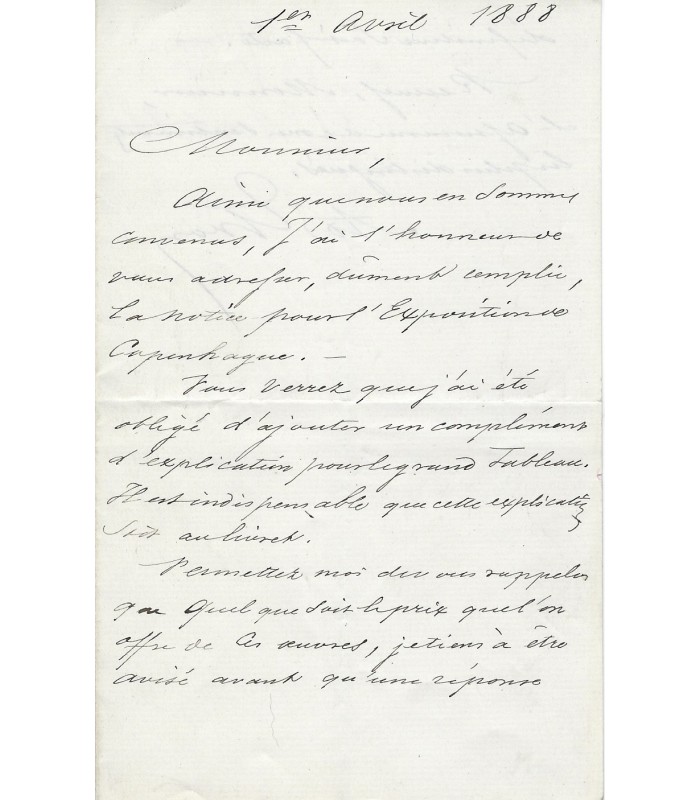 1er Avril 1888
Monsieur,
Ainsi que nous en sommes
convenus, J'ai l'honneur de
vous adresser, dûment remplie,
la notice pour l'Exposition de
Copenhague. —
Vous verrez que j'ai été
obligé d'ajouter un complément
d'explication pour le grand Tableau.
Il est indispensable que cette explication
soit au livret.
Permettez moi de vous rappeler
que Quel que soit le prix que l'on
offre de ces œuvres, je tiens à être
avisé avant qu'une réponse